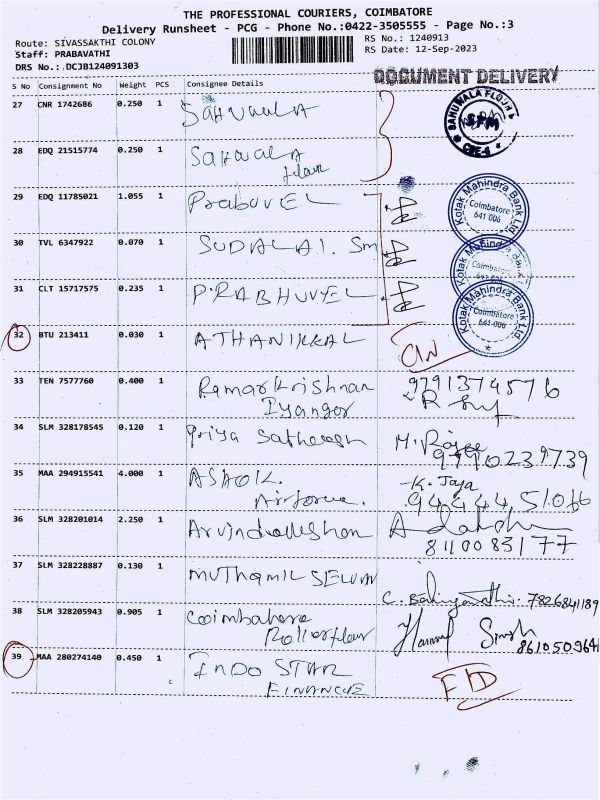 THE PROFESSIONAL COURIERS, COIMBATORE
Delivery Runsheet - PCG - Phone No.:0422-3505555 - Page No.:3
Route: SIVASSAKTHI COLONY
RS No.: 1240913
Staff: PRABAVATHI
RS Date: 12-Sep-2023
DRS No.: DCJB124091303
DOCUMENT DELIVERY
S No Consignment No Weight PCS Consignee Details
27 CNR 1742686 0.250 1 SAHUWALA
SAHUWALA FLOUR
CBE-6
28 EDQ 21515774 0.250 1 Sahuwala
flour
29 EDQ 11785021 1.055 1 PrabuVEL
Kotak Mahindra Bank Ltd
Coimbatore
641 006
30 TVL 6347922 0.070 1 SUDALAI. Sm
Kotak Mahindra Bank Ltd
Coimbatore
31 CLT 15717575 0.235 1 PRABHUVEL
Kotak Mahindra Bank Ltd
Coimbatore
641-006
32 BTU 213411 0.030 1 ATHANIKKAL
33 TEN 7577760 0.400 1 Ramarkrishnan 9791374576
Iyangor
34 SLM 328178545 0.120 1 Priya Satheesh M. Rojee
9790239739
35 MAA 294915541 4.000 1 ASHOK. K. Jaya
Airforce. 9444451066
36 SLM 328201014 2.250 1 Arvindadeshan
8110083177
37 SLM 328228887 0.130 1 MUTHAMIL SELVAN
7826841189
38 SLM 328205943 0.905 1 Coimbahore
Roller flour Singh
8610509641
39 MAA 280274140 0.450 1 INDO STAR
FINANCE